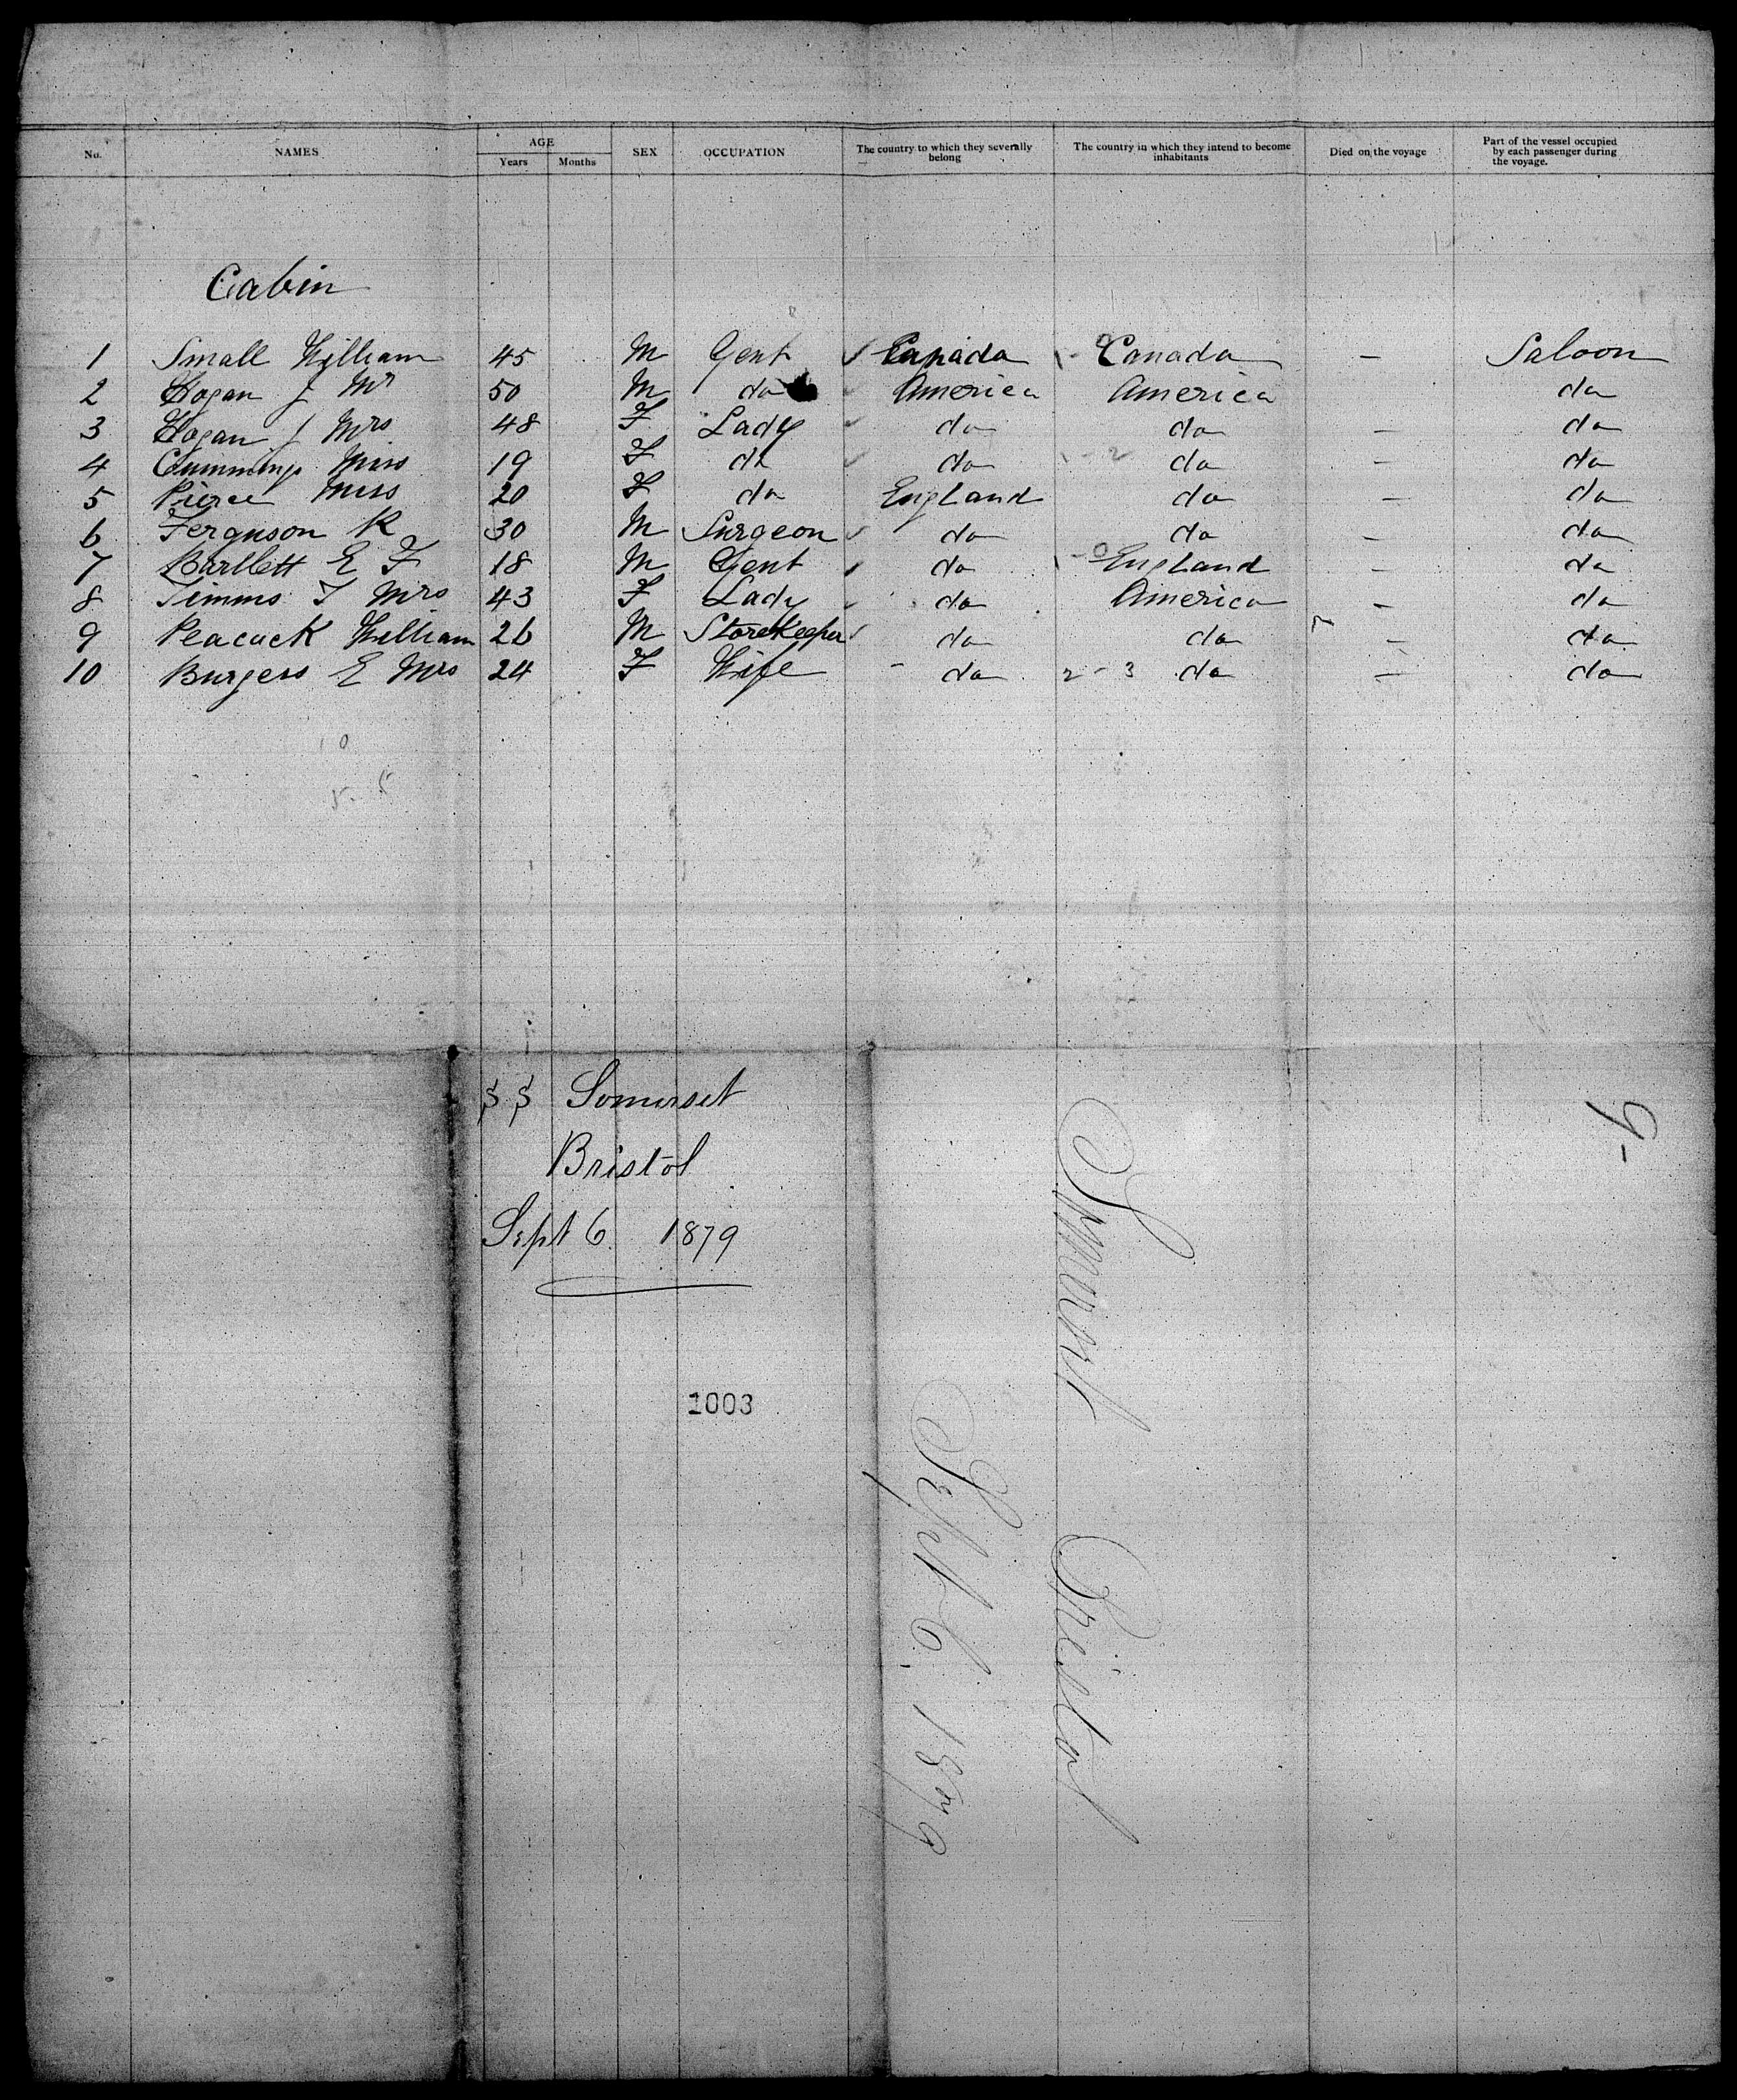 No. NAMES AGE Years Months SEX OCCUPATION The country to which they severally belong The country in which they intend to become inhabitants Died on the voyage Part of the vessel occupied by each passenger during the voyage.
Cabin
1 Small William 45 M Gent ✓ Canada Canada — Saloon
2 Hogan J Mr 50 M do America America do
3 Hogan J Mrs 48 F Lady do do — do
4 Cummings Miss 19 F do do do — do
5 Pierce Miss 20 F do England do — do
6 Ferguson R 30 M Surgeon do do — do
7 Bartlett E F 18 M Gent do England — do
8 Timms T Mrs 43 F Lady do America — do
9 Peacock William 26 M StoreKeeper do do — do
10 Burgess E Mrs 24 F Wife - do 2 - 3 do — do
S S Somerset
Bristol
Sept 6. 1879
1003
Somerset Bristol
Sept 6. 1879